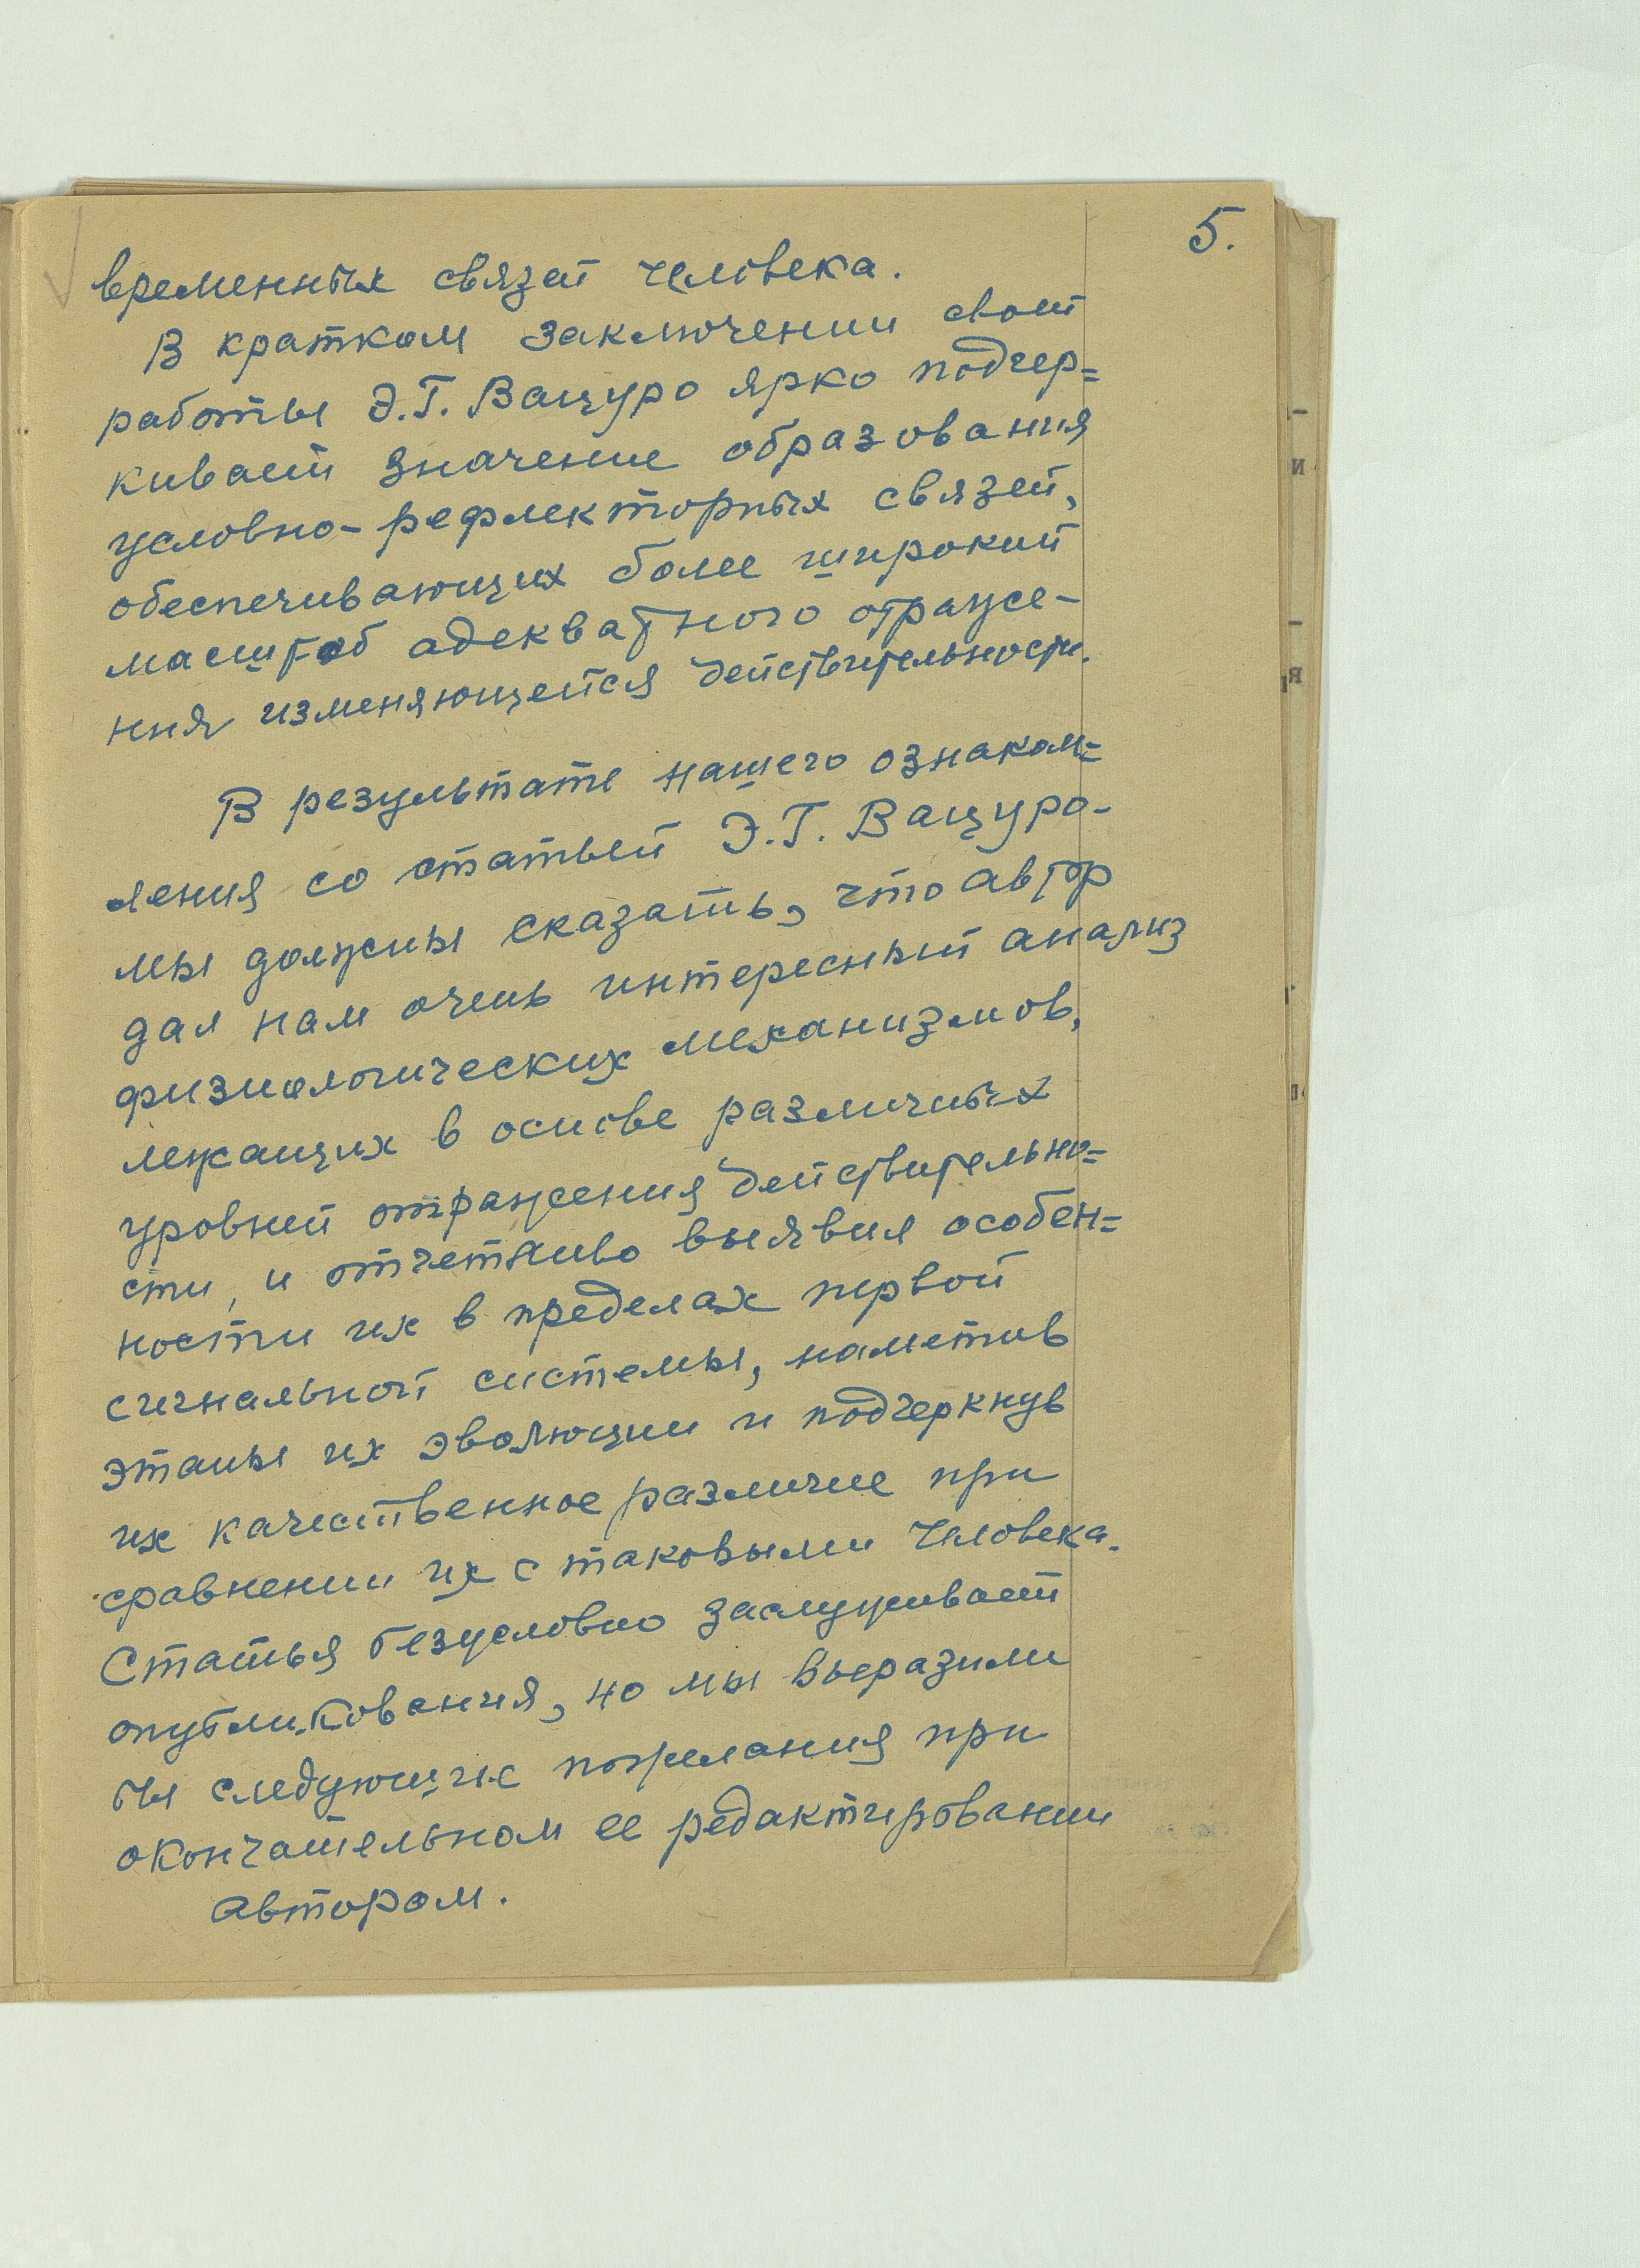 5.
временных связей человека.
В кратком заключении своей
работы Э.Г. Вацуро ярко подчер=
кивает значение образования
условно-рефлекторных связей,
обеспечивающих более широкий
масштаб адекватного отраже-
ния изменяющейся действительности.
В результате нашего ознаком=
ления со статьей Э.Г. Вацуро-
мы должны сказать, что автор
дал нам очень интересный анализ
физиологических механизмов,
лежащих в основе различных
уровней отражения действительно=
сти, и отчетливо выявил особен=
ности их в пределах первой
сигнальной системы, наметив
этапы их эволюции и подчеркнув
их качественное различие при
сравнении их с таковыми человека.
Статья безусловно заслуживает
опубликования, но мы выразили
бы следующие пожелания при
окончательном ее редактировании
автором.